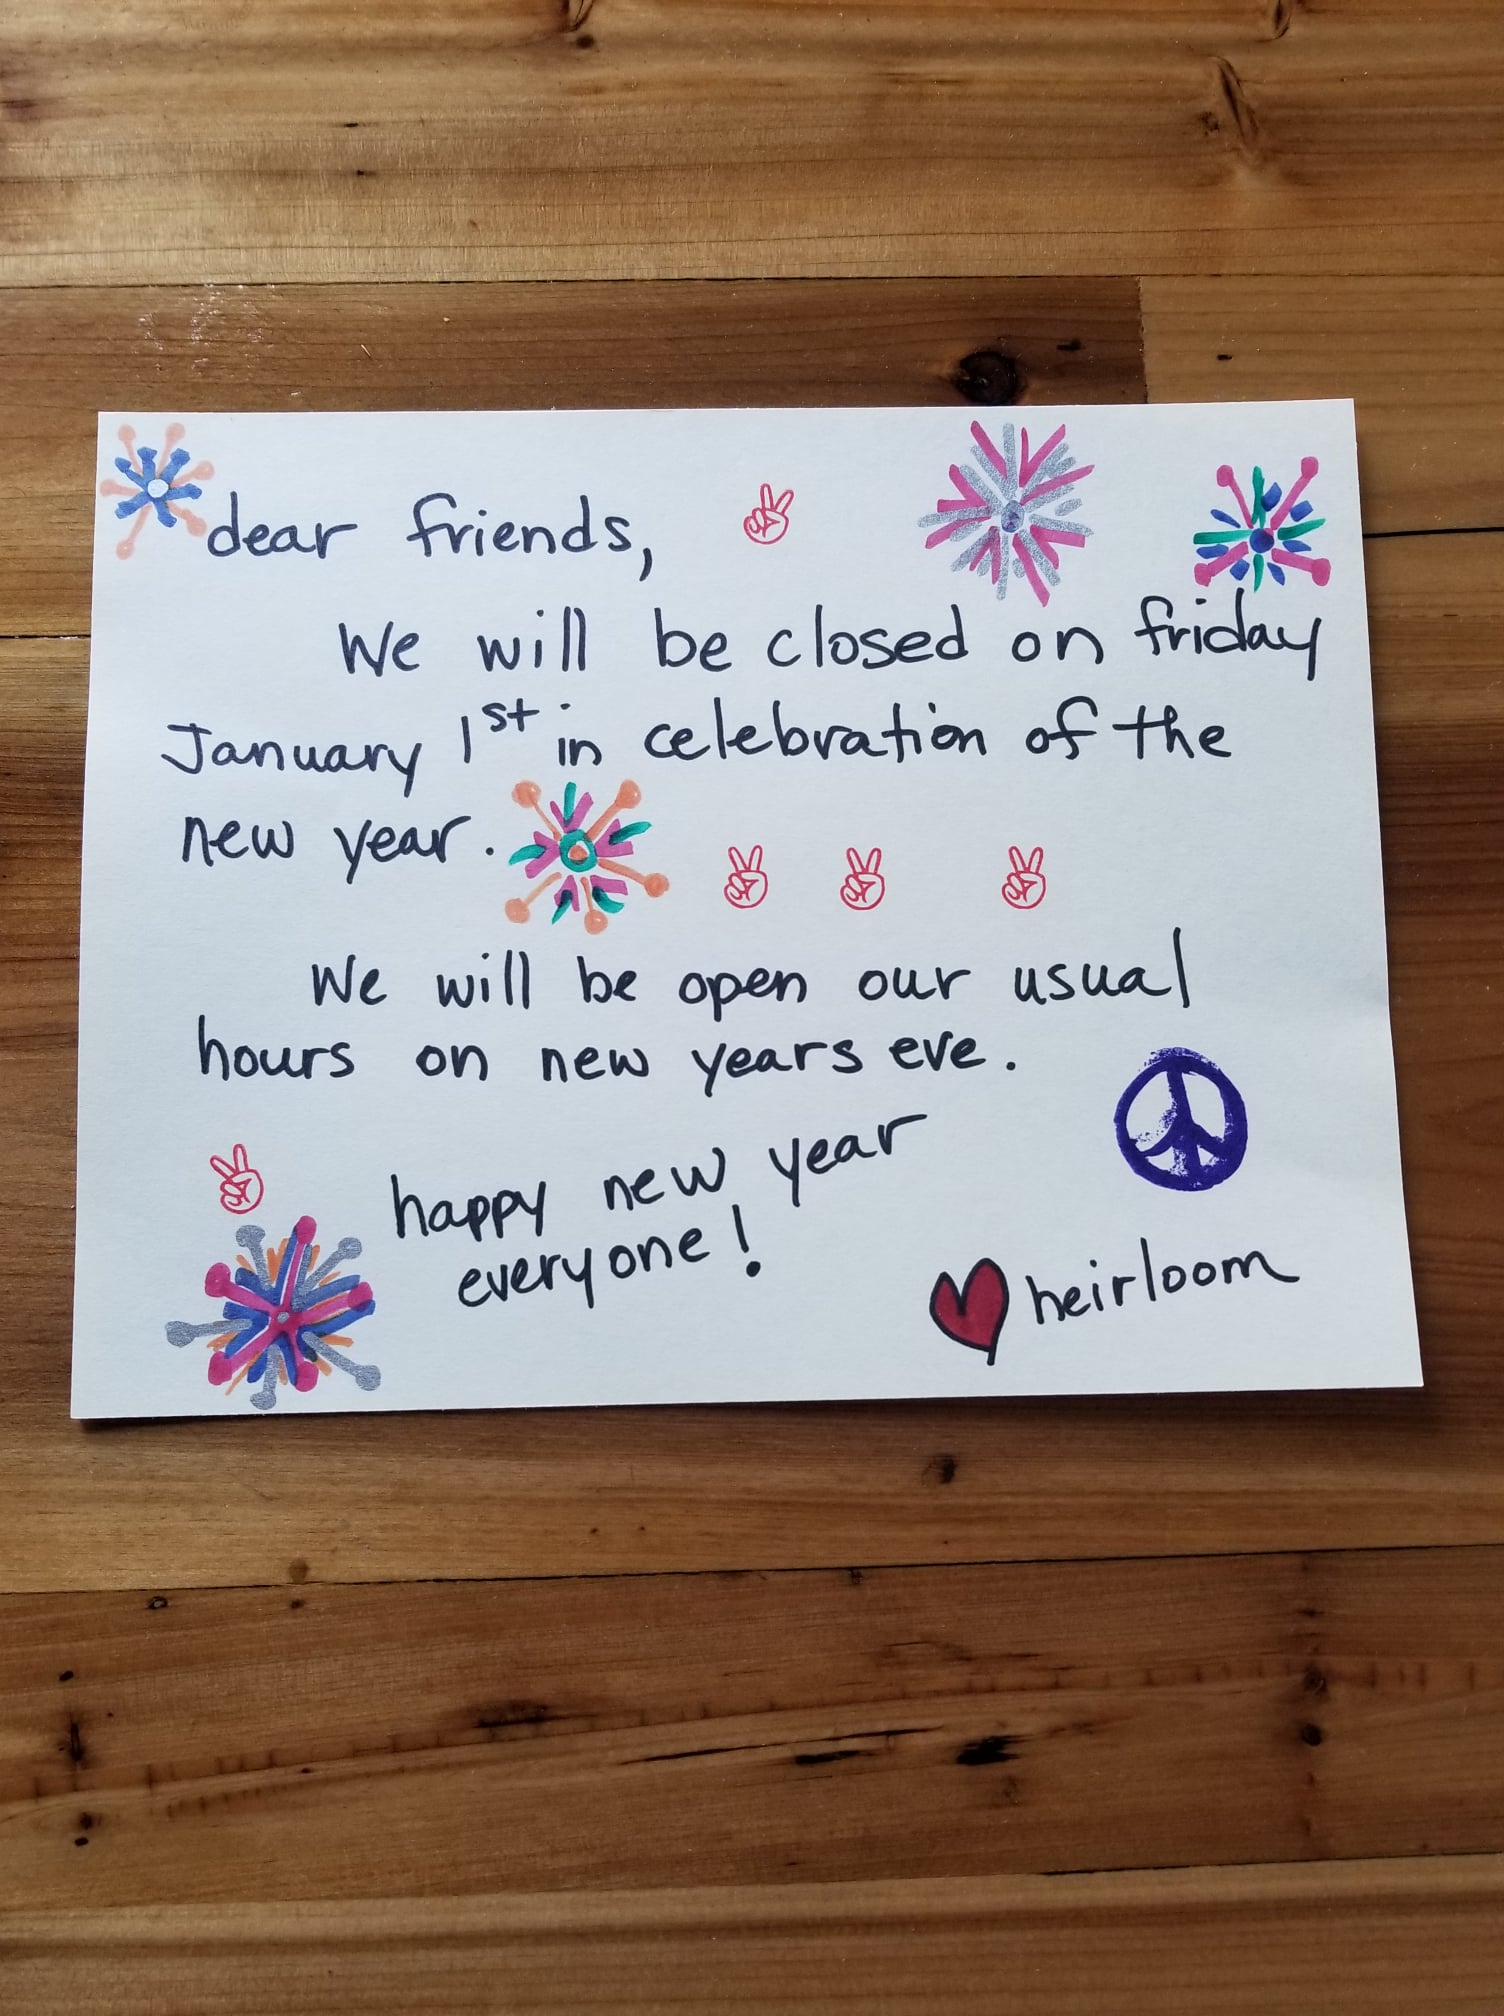 dear friends,
We will be closed on friday
January 1st in celebration of the
new year.
We will be open our usual
hours on new years eve.
happy new year
everyone!
heirloom